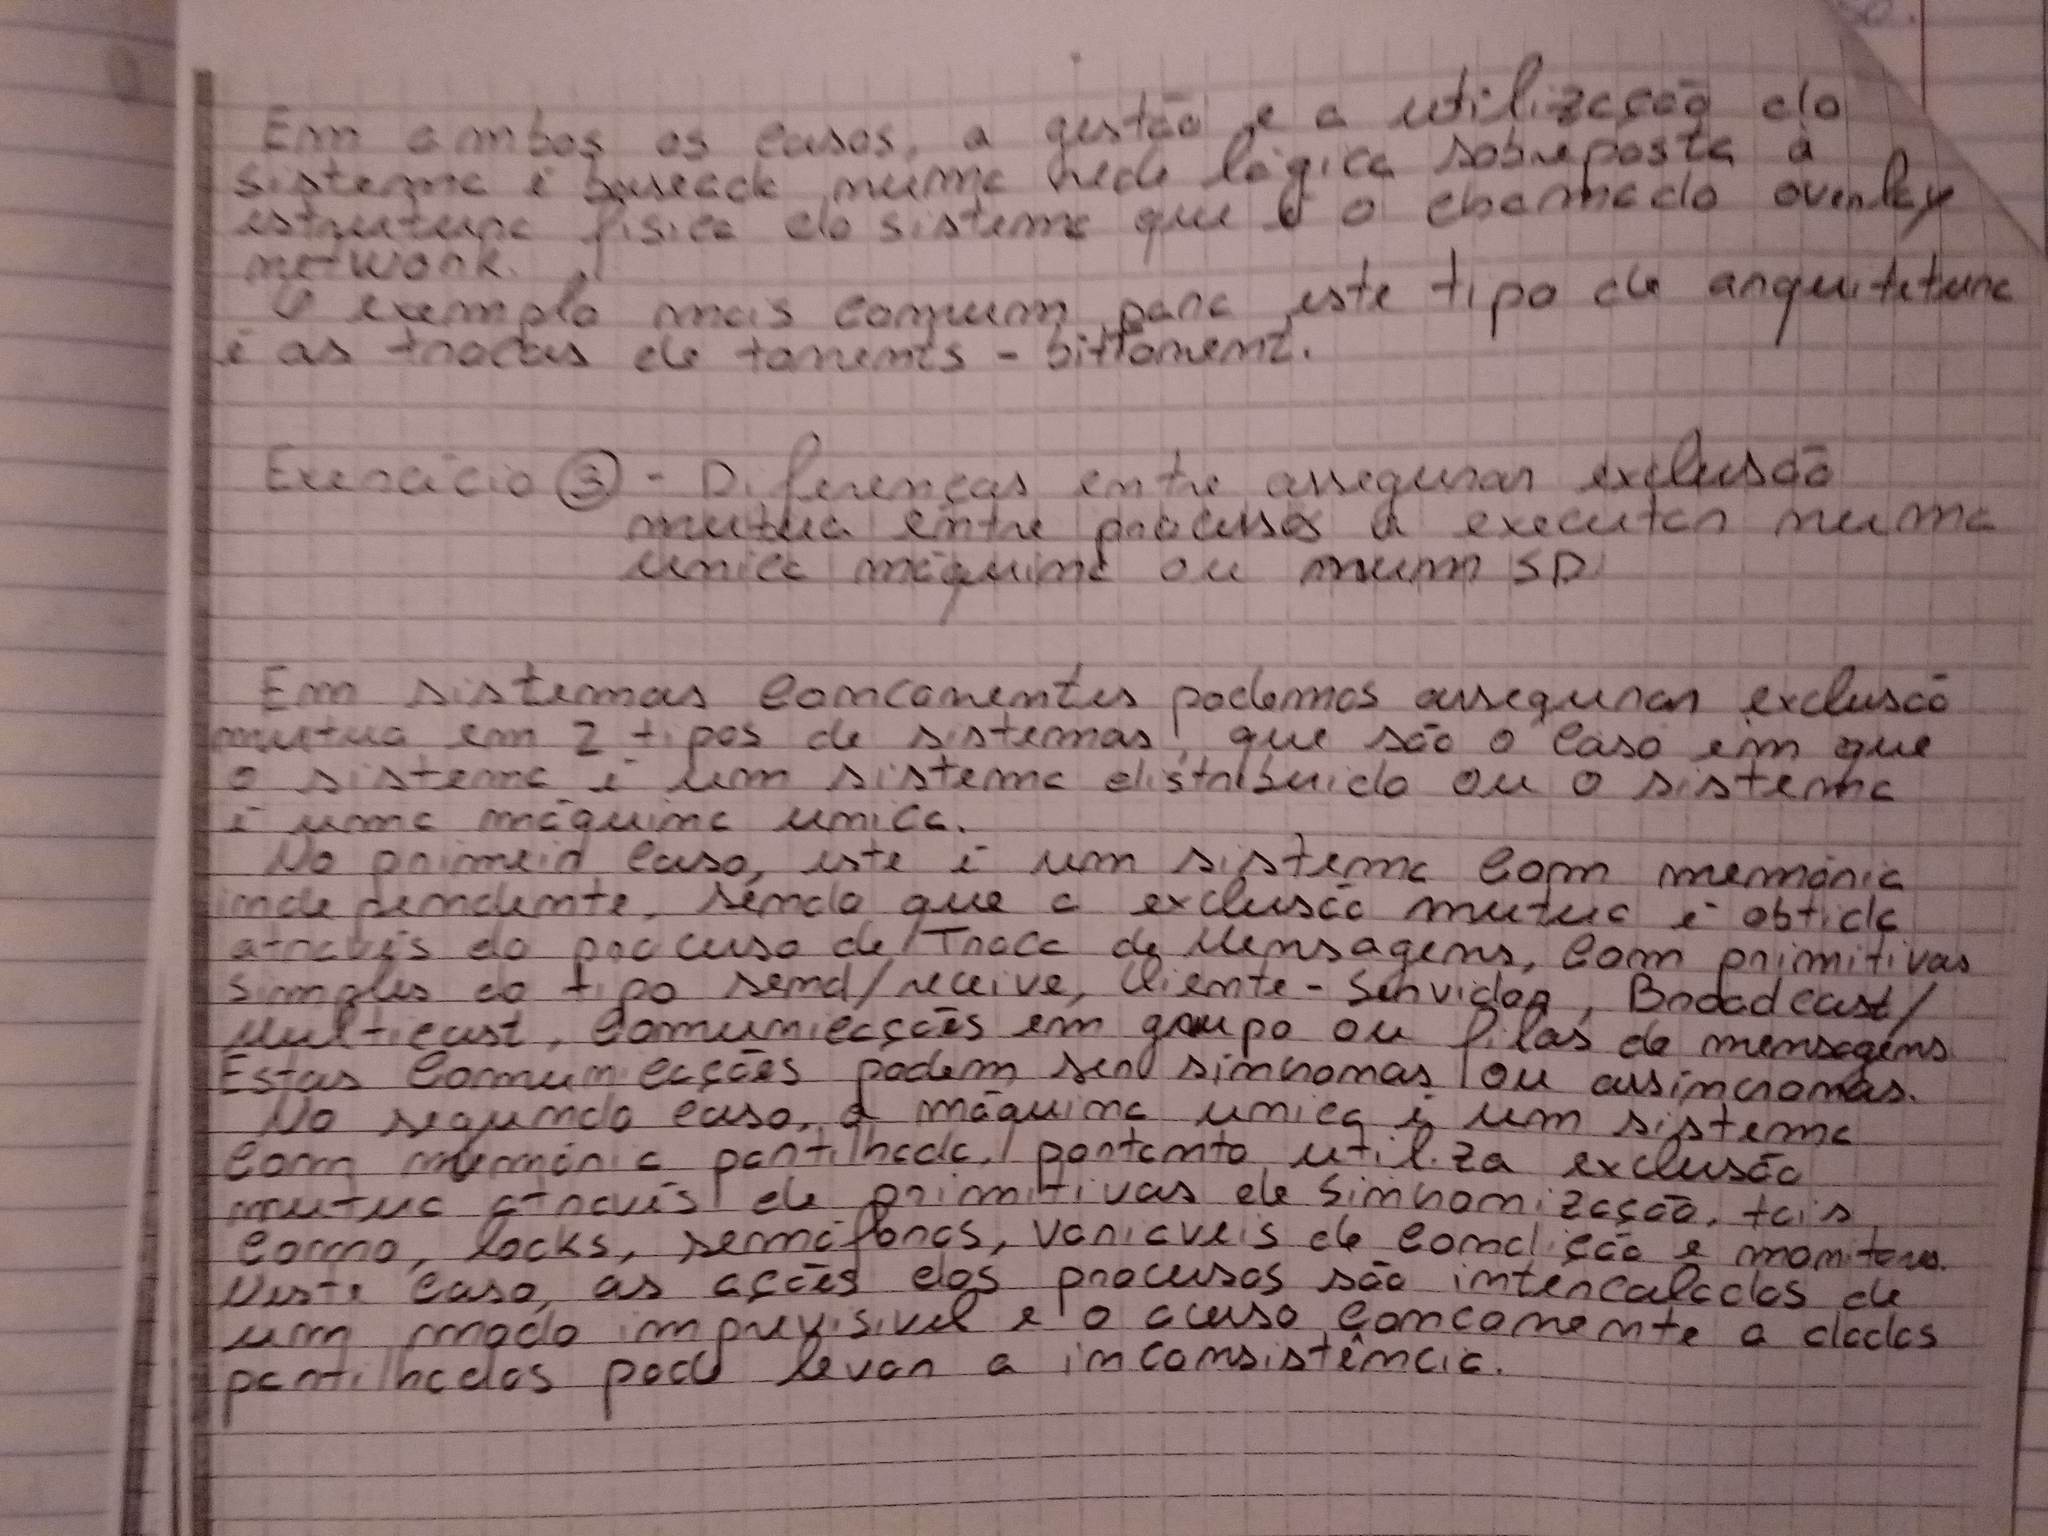 Em ambos os casos, a gestão e a utilização do
sistema é baseada numa rede lógica sobreposta à
estrutura física do sistema que é o chamado overlay
network.
O exemplo mais comum para este tipo de arquitetura
é as trocas de torrents - bittorrent.
Exercício ③ - Diferenças entre assegurar exclusão
mutua entre processos a executar numa
unica máquina ou num SD.
Em sistemas concorrentes podemos assegurar exclusão
mutua em 2 tipos de sistemas, que são o caso em que
o sistema é um sistema distribuido ou o sistema
é uma máquina unica.
No primeiro caso, este é um sistema com memória
independente, sendo que a exclusão mutua é obtida
através do processo de Troca de Mensagens, com primitivas
simples do tipo send/receive, Cliente-Servidor, Broadcast/
Multicast, comunicações em grupo ou filas de mensagens
Estas comunicações podem ser sincronas ou assincronas.
No segundo caso, a máquina unica é um sistema
com memória partilhada, portanto utiliza exclusão
mutua através de primitivas de sincronização, tais
como, locks, semáforos, variaveis de condição e monitores.
Neste caso, as ações dos processos são intercalados de
um modo imprevisivel e o acesso concorrente a dados
partilhados pode levar a inconsistência.